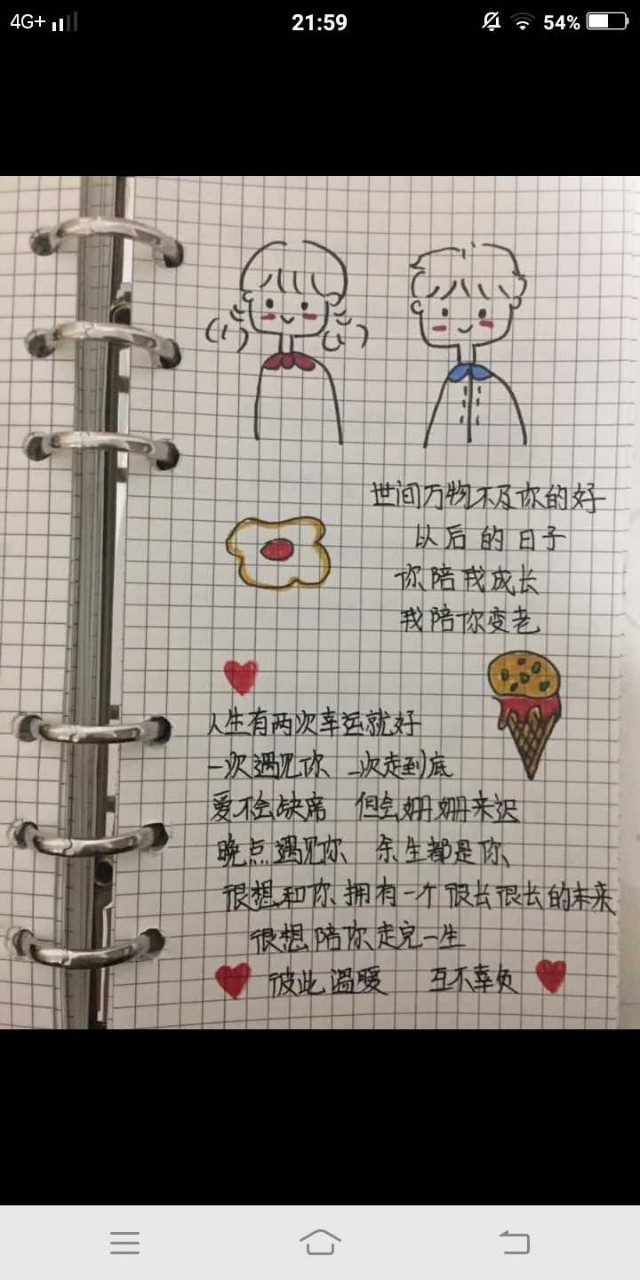 4G+ 21:59 54%
世间万物不及你的好
以后的日子
你陪我成长
我陪你变老
人生有两次幸运就好
一次遇见你 一次走到底
爱不会缺席 但会姗姗来迟
晚点遇见你 余生都是你
很想和你拥有一个很长很长的未来
很想陪你走完一生
彼此温暖 互不辜负